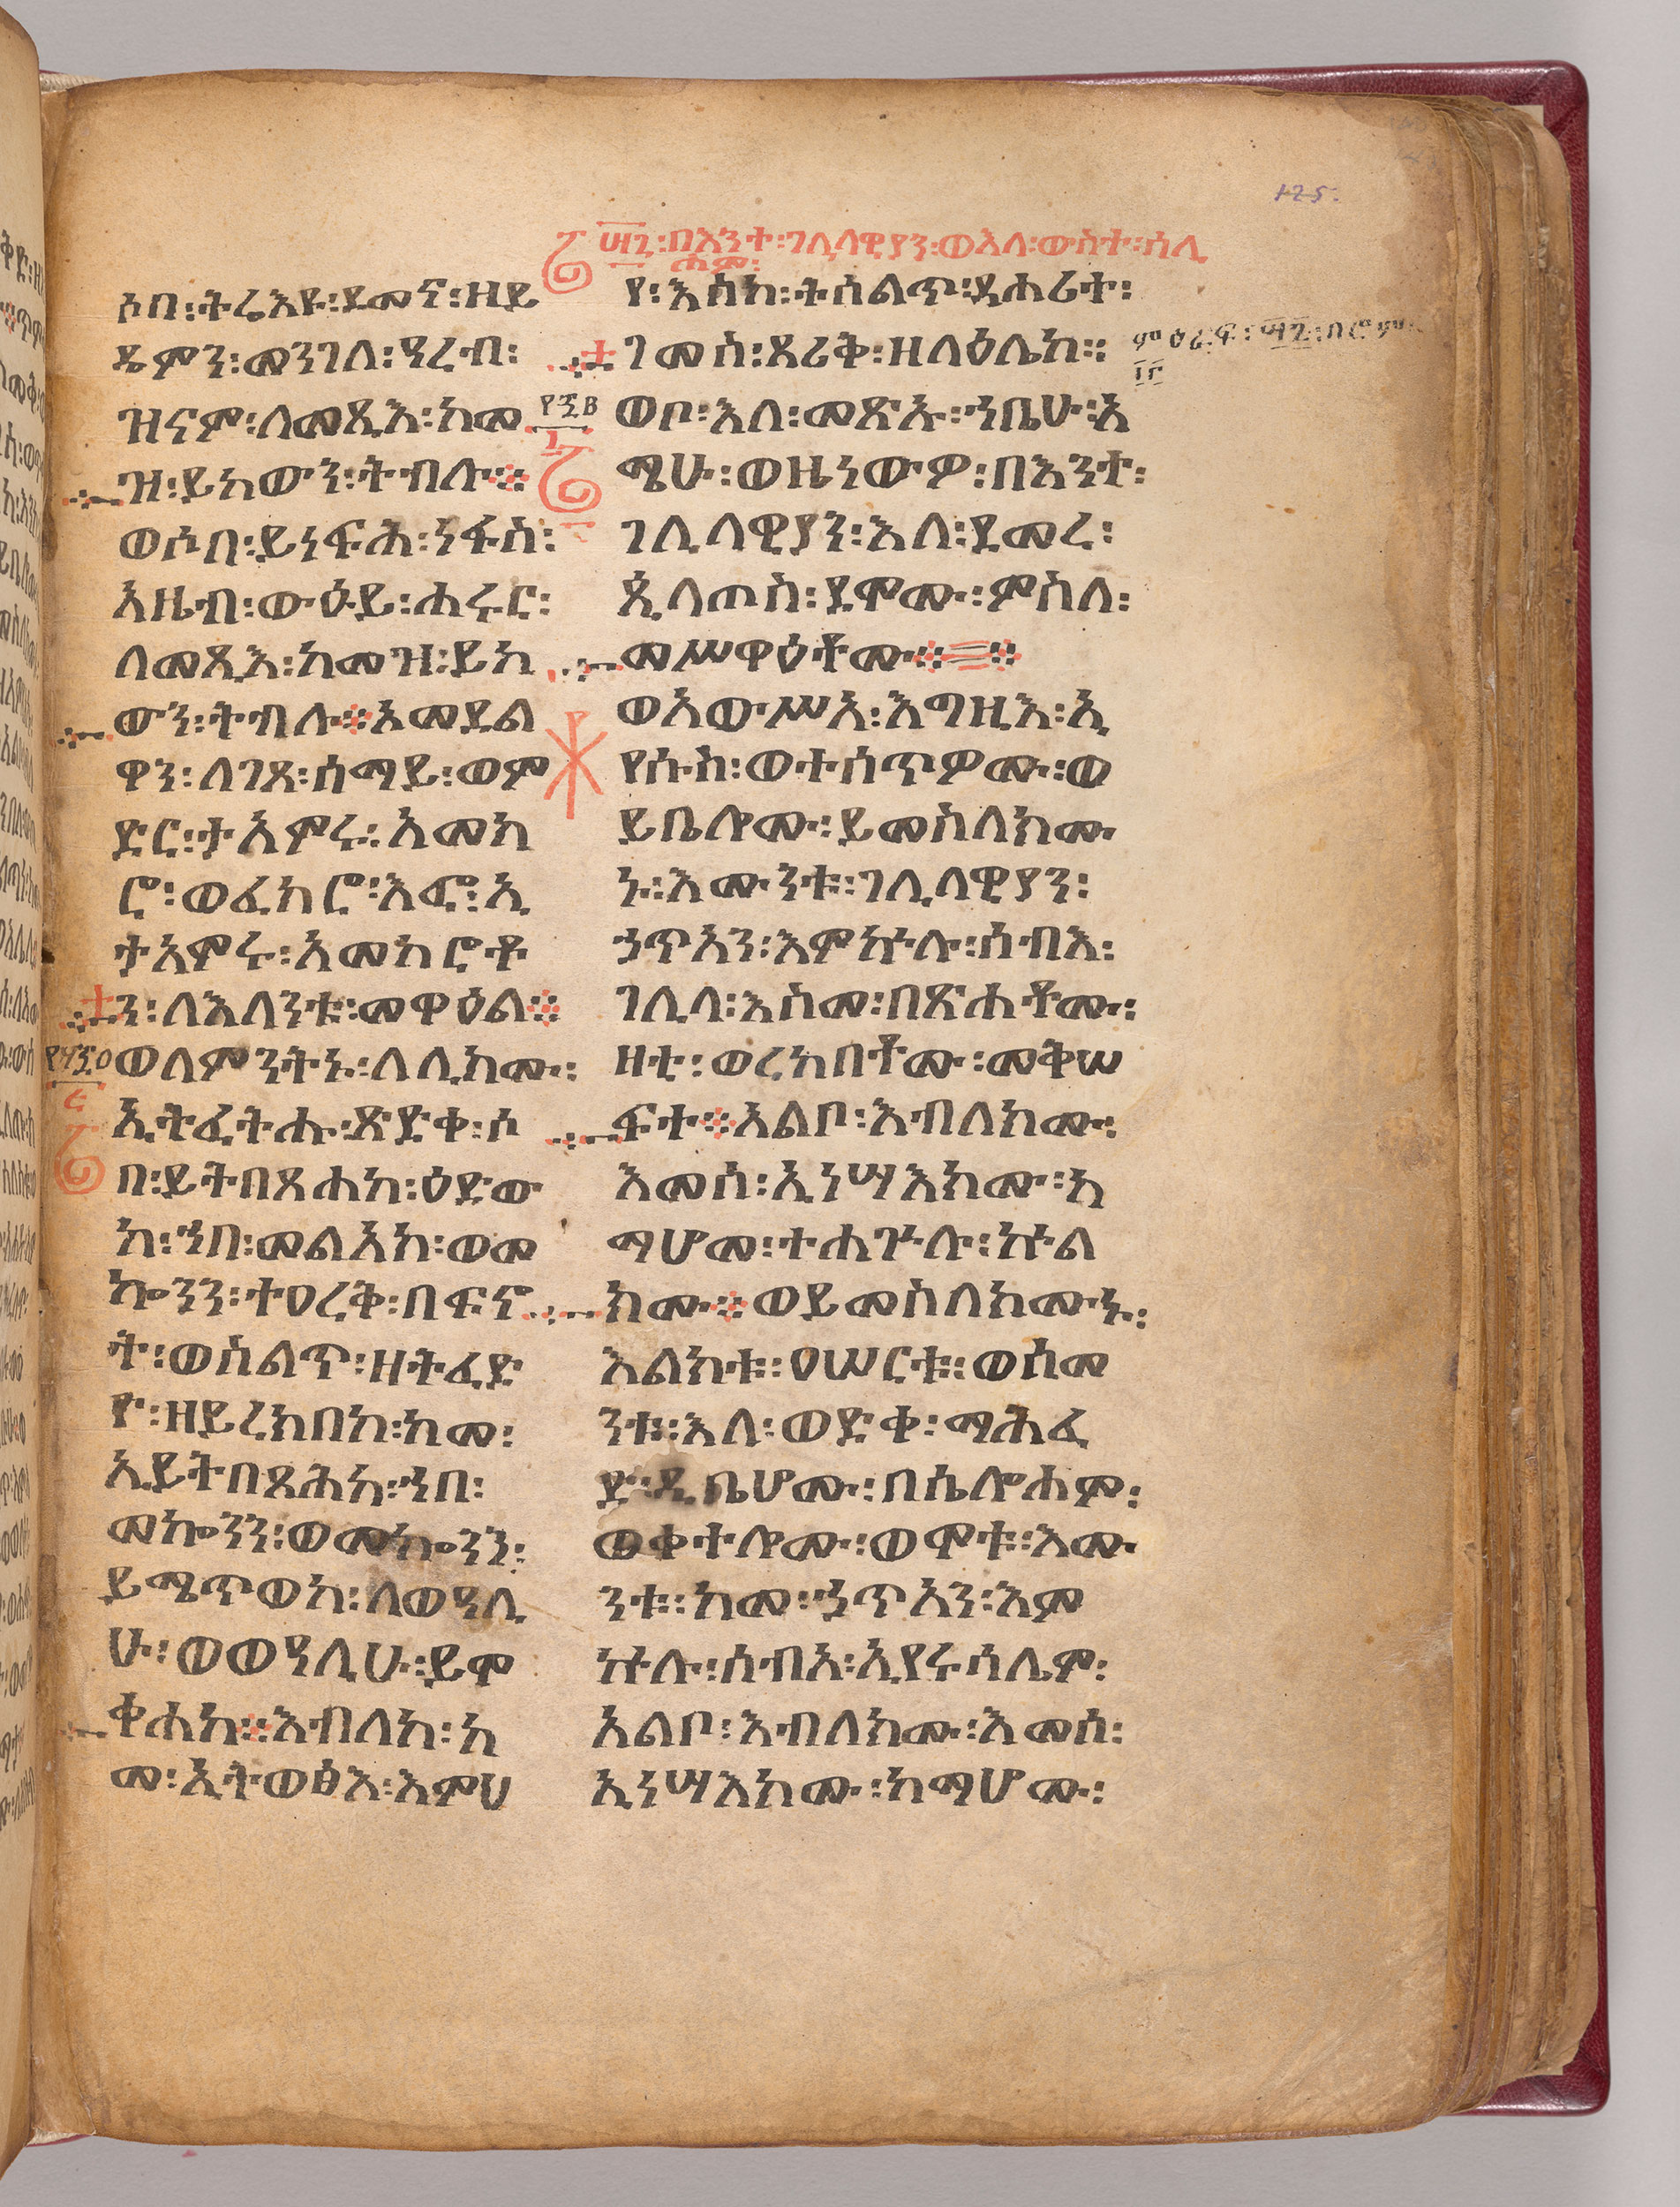 125.
፶፫፡በእንተ፡ገሊላዊያን፡ወእለ፡ውስተ፡ሰሊ
ሖም፡
ሶበ፡ትሬእዩ፡ደመና፡ዘይ
ዴምን፡መንገለ፡ዓረብ፡
ዝናም፡ለመጺእ፡ከመ
ዝ፡ይከውን፡ትብሉ፨
ወሶበ፡ይነፍሕ፡ነፋስ፡
አዜብ፡ውዕይ፡ሐሩር፡
ለመጺእ፡ከመዝ፡ይከ
ውን፡ትብሉ፨አመደል
ዋን፡ለገጸ፡ሰማይ፡ወም
ድር፡ታአምሩ፡አመክ
ሮ፡ወፈክሮ፡እፎ፡ኢ
ታአምሩ፡አመክሮቶ
ን፡ለእለንቱ፡መዋዕል፨
ወለምንትኑ፡ለሊክሙ፡
ኢትፈትሑ፡ጽድቀ፡ሶ
በ፡ይትበጻሐከ፡ዕድው
ከ፡ኀበ፡መልአክ፡ወመ
ኰንን፡ተዐረቅ፡በፍኖ
ት፡ወሰልጥ፡ዘትፈድ
ዮ፡ዘይረክበከ፡ከመ፡
ኢይትበጻሕከ፡ኀበ፡
መኰንን፡ወመኰንን፡
ይሜጥወከ፡ለወዓሊ
ሁ፡ወወዓሊሁ፡ይሞ
ቀሐከ፨እብለከ፡ከ
መ፡ኢትወፅእ፡እምህ
የ፡እስከ፡ተሰልጥ፡ደሐሪተ፡
ገመሰ፡ጸሪቅ፡ዘላዕሌከ፡፡
ወቦ፡እለ፡መጽኡ፡ኀቤሁ፡አ
ሜሁ፡ወዜነውዎ፡በእንተ፡
ገሊላዊያን፡እለ፡ደመረ፡
ጲላጦስ፡ደሞሙ፡ምስለ፡
መሥዋዕቶሙ፨፨
ወአውሥአ፡እግዚእ፡ኢ
የሱስ፡ወተሰጥዎሙ፡ወ
ይቤሎሙ፡ይመስለክሙ
ኑ፡እሙንቱ፡ገሊላዊያን፡
ኃጥአን፡እምኵሉ፡ሰብአ፡
ገሊላ፡እስመ፡በጽሐቶሙ፡
ዛቲ፡ወረከበቶሙ፡መቅሠ
ፍተ፨አልቦ፡እብለክሙ፡
እመሰ፡ኢነሣእክሙ፡ከ
ማሆሙ፡ተሐጕሉ፡ኵል
ክሙ፨ወይመስለክሙኑ፡
እልክቱ፡ዐሠርቱ፡ወሰመ
ንቱ፡እለ፡ወድቀ፡ማሕፈ
ድ፡ዲቤሆሙ፡በሴሎሐም፡
ወቀተሎሙ፡ወሞቱ፡እሙ
ንቱ፡ከመ፡ኀጥአን፡እም
ኵሉ፡ሰብአ፡ኢየሩሳሌም፡
አልቦ፡እብለክሙ፡እመሰ፡
ኢነሣእክሙ፡ከማሆሙ፡